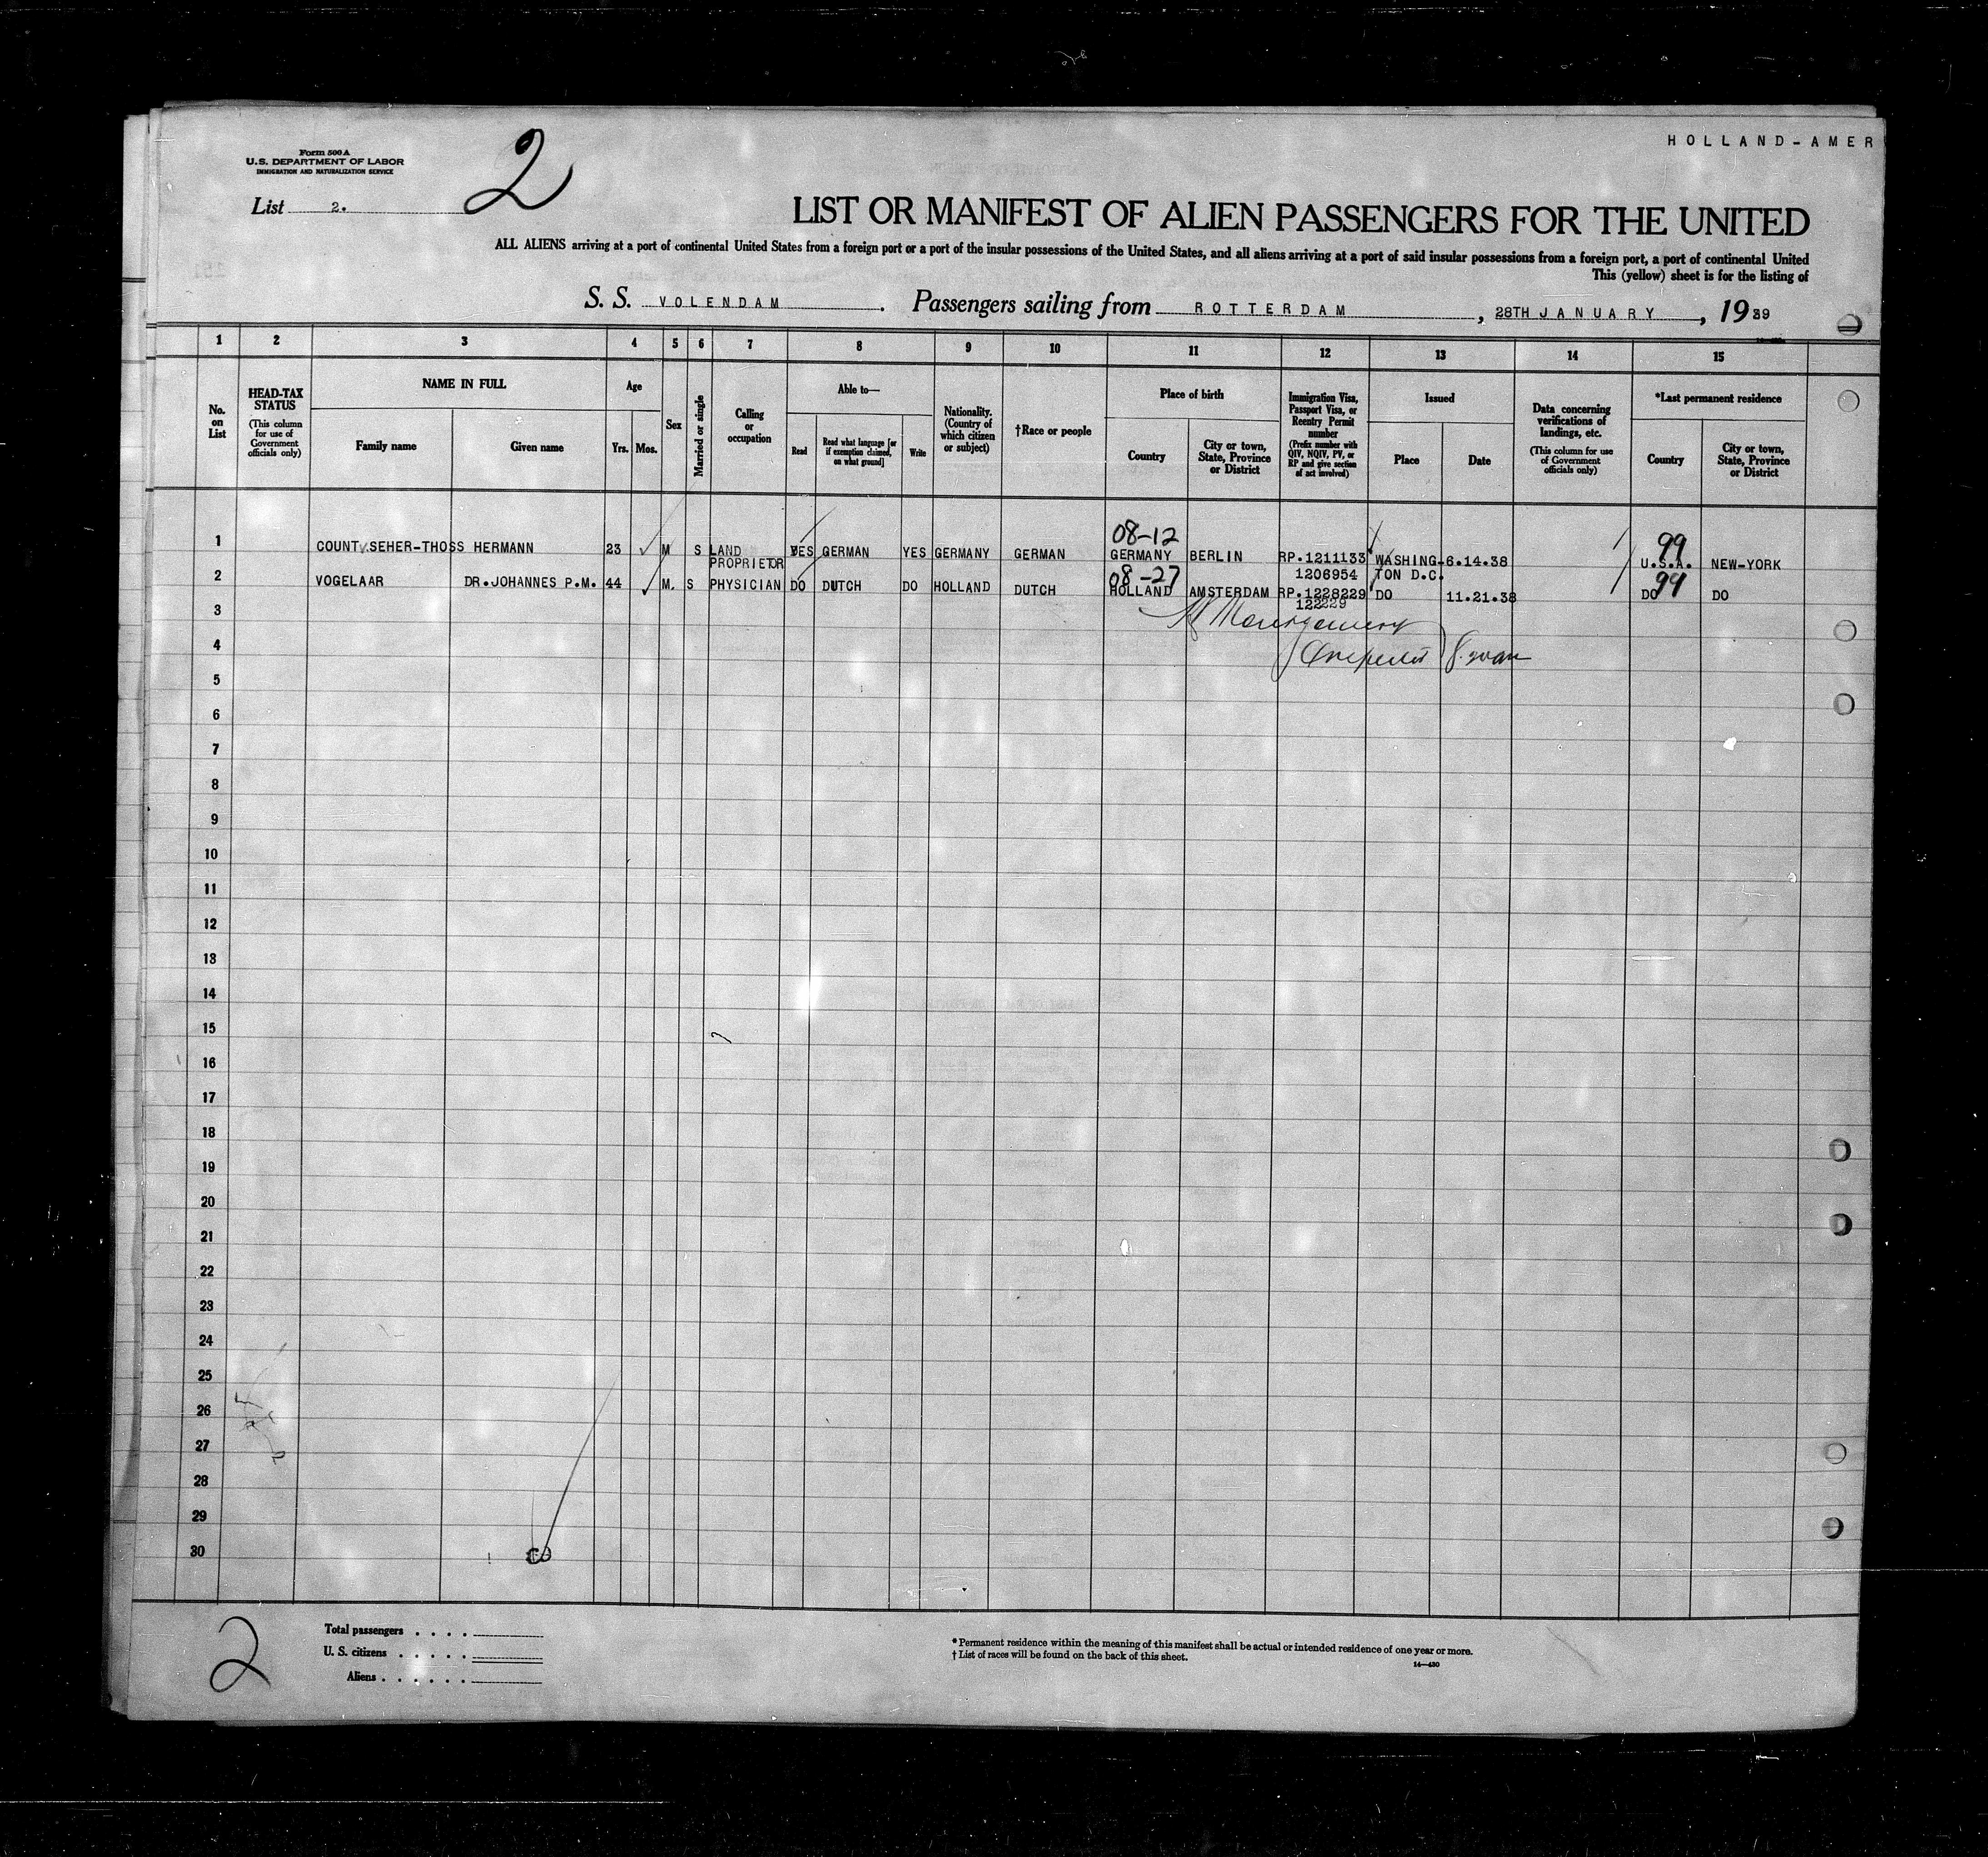 HOLLAND-AMER
Form 500 A
U.S. DEPARTMENT OF LABOR
IMMIGRATION AND NATURALIZATION SERVICE
List 2.
2
LIST OR MANIFEST OF ALIEN PASSENGERS FOR THE UNITED
ALL ALIENS arriving at a port of continental United States from a foreign port or a port of the insular possessions of the United States, and all aliens arriving at a port of said insular possessions from a foreign port, a port of continental United
This (yellow) sheet is for the listing of
S. S. VOLENDAM. Passengers sailing from ROTTERDAM, 28TH JANUARY, 1939
1 2 3 4 5 6 7 8 9 10 11 12 13 14 15
No. on List
HEAD-TAX STATUS
(This column for use of Government officials only)
NAME IN FULL
Family name
Given name
Age
Yrs. Mos.
Sex
Married or single
Calling or occupation
Able to—
Read
Read what language [or if exemption claimed, on what ground]
Write
Nationality. (Country of which citizen or subject)
†Race or people
Place of birth
Country
City or town, State, Province or District
Immigration Visa, Passport Visa, or Reentry Permit number
(Prefix number with QIV, NQIV, PV, or RP and give section of act involved)
Issued
Place
Date
Data concerning verifications of landings, etc.
(This column for use of Government officials only)
*Last permanent residence
Country
City or town, State, Province or District
08-12
99
1 COUNT SEHER-THOSS HERMANN 23 M S LAND YES GERMAN YES GERMANY GERMAN GERMANY BERLIN RP.1211133 WASHING- 6.14.38 U.S.A. NEW-YORK
PROPRIETOR 1206954 TON D.C.
08-27
99
2 VOGELAAR DR.JOHANNES P.M. 44 M. S PHYSICIAN DO DUTCH DO HOLLAND DUTCH HOLLAND AMSTERDAM RP.1228229 DO 11.21.38 DO DO
122229
3 Montgomery
4
5
6
7
8
9
10
11
12
13
14
15
16
17
18
19
20
21
22
23
24
25
26
27
28
29
30
2
Total passengers
U. S. citizens
Aliens
* Permanent residence within the meaning of this manifest shall be actual or intended residence of one year or more.
† List of races will be found on the back of this sheet.
14—430